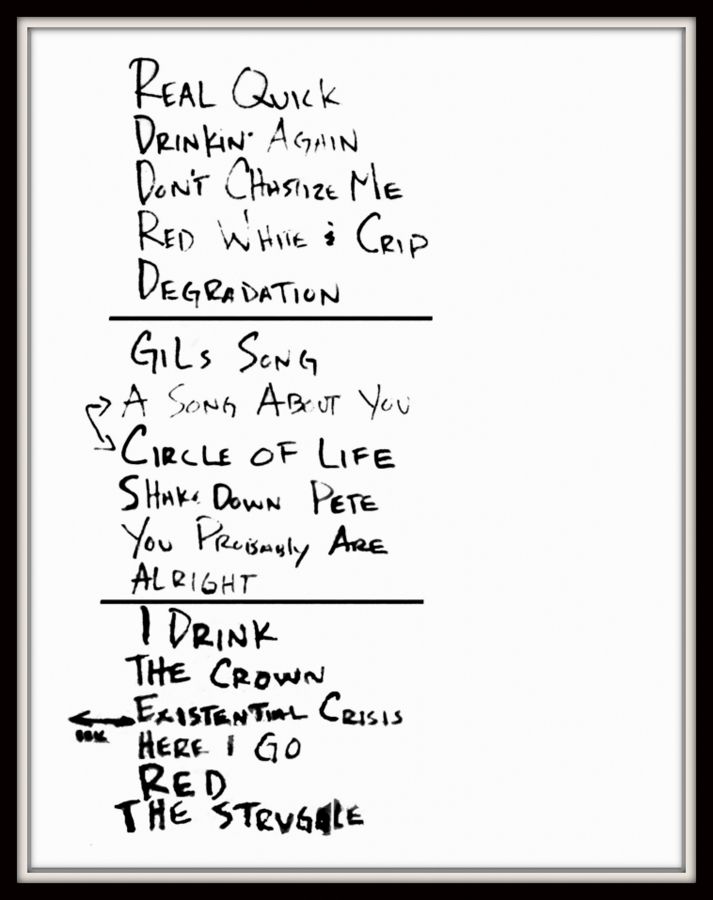 REAL QUICK
DRINKIN' AGAIN
DON'T CHASTIZE ME
RED WHITE & CRIP
DEGRADATION
GILS SONG
A SONG ABOUT YOU
CIRCLE OF LIFE
SHAKE DOWN PETE
YOU PROBABLY ARE
ALRIGHT
I DRINK
THE CROWN
EXISTENTIAL CRISIS
HERE I GO
RED
THE STRUGGLE